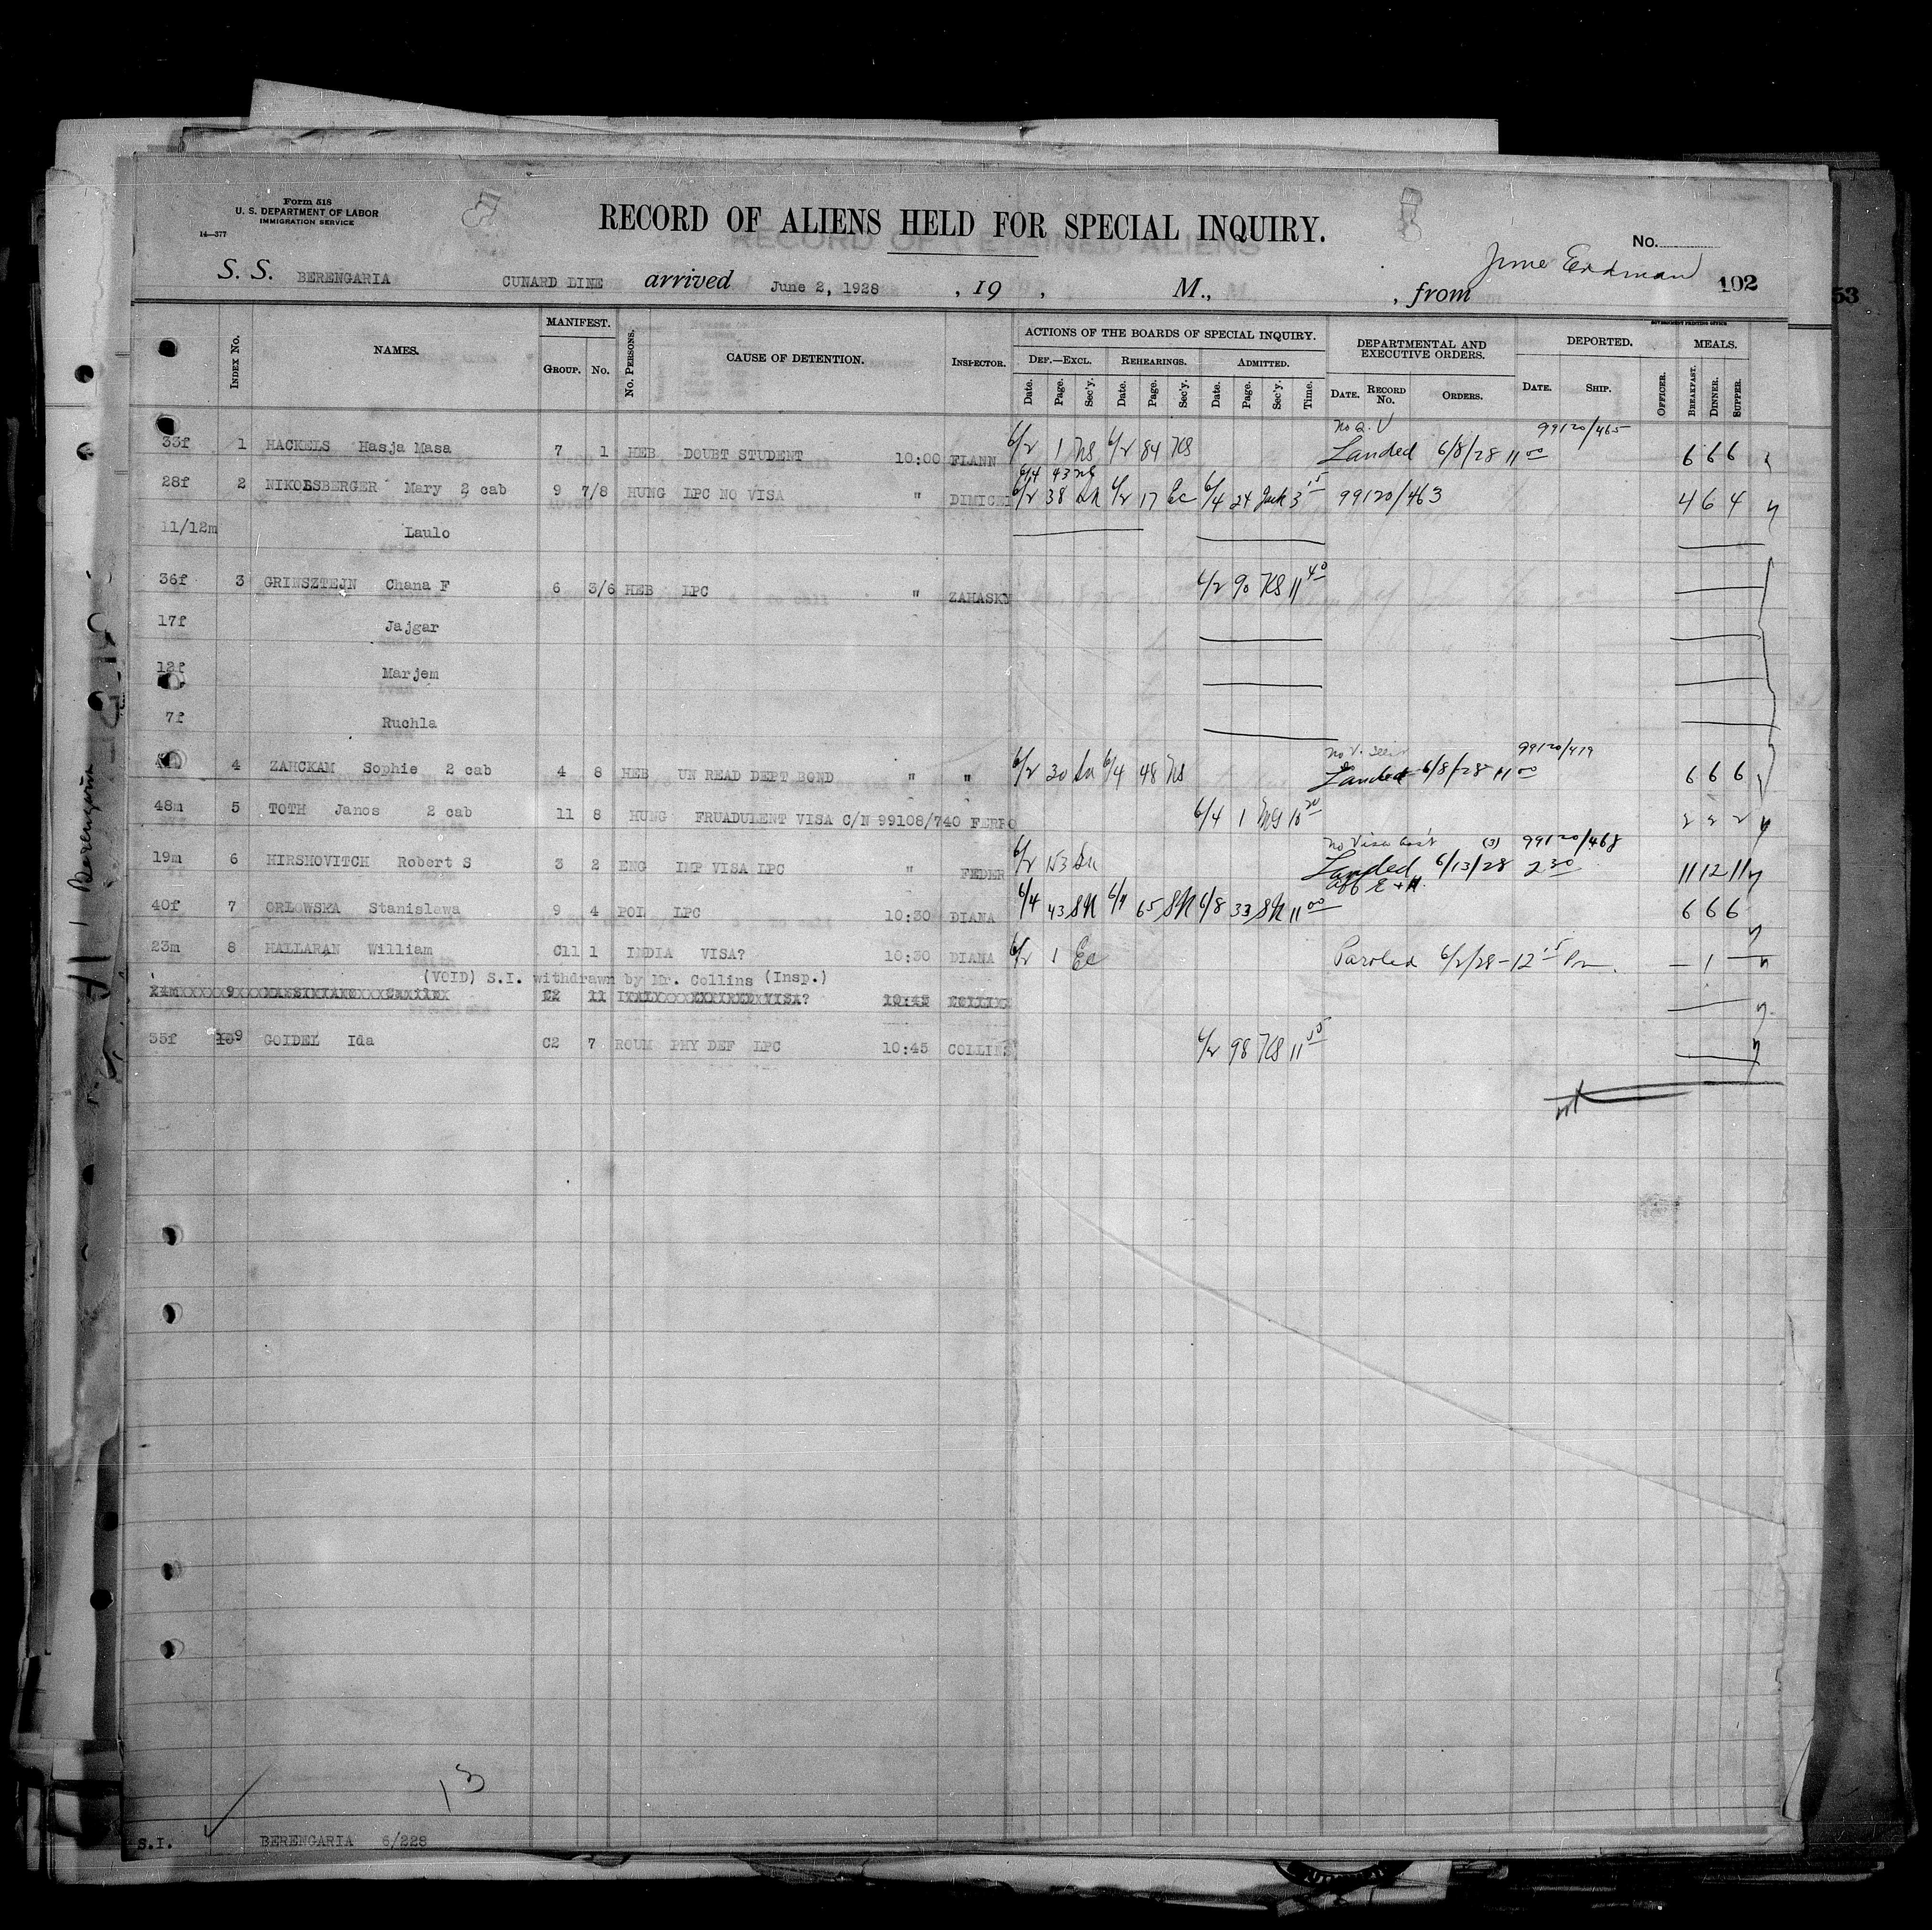 Form 518
U. S. DEPARTMENT OF LABOR
IMMIGRATION SERVICE
14—377
RECORD OF ALIENS HELD FOR SPECIAL INQUIRY.
No.
S. S. BERENGARIA CUNARD LINE arrived June 2, 1928 , 19 , M., , from Erdman 102
53
GOVERNMENT PRINTING OFFICE
Index No. NAMES. MANIFEST. Group. No. No. Persons. CAUSE OF DETENTION. Inspector. ACTIONS OF THE BOARDS OF SPECIAL INQUIRY. DEPARTMENTAL AND EXECUTIVE ORDERS. DEPORTED. MEALS.
Def.—Excl. Rehearings. Admitted.
Date. Page. Sec'y. Date. Page. Sec'y. Date. Page. Sec'y. Time. Date. Record No. Orders. Date. Ship. Officer. Breakfast. Dinner. Supper.
99120/465
33f 1 HACKELS Hasja Masa 7 1 HEB DOUBT STUDENT 10:00 FLANN 6/2 1 NS 6/2 84 KS Landed 6/8/28 11 00 6 6 6
6/4 43
28f 2 NIKOLSBERGER Mary 2 cab 9 7/8 HUNG LPC NO VISA " DIMICHI 6/2 38 6/2 17 Ec 6/4 24 3 15 99120/463 4 6 4
11/12m Laulo
36f 3 GRINSZTEJN Chana F 6 3/6 HEB LPC " ZAHASKY 6/2 90 KS 11 40
17f Jajgar
12f Marjem
7f Ruchla
99120/419
4 ZAHCKAM Sophie 2 cab 4 8 HEB UN READ DEPT BOND " " 6/2 30 6/4 48 NS Landed 6/8/28 11 00 6 6 6
48m 5 TOTH Janos 2 cab 11 8 HUNG FRUADULENT VISA C/N 99108/740 FERRO 6/4 1 10 20 2 2 2
No Visa (3) 99120/468
19m 6 HIRSHOVITCH Robert S 3 2 ENG IMP VISA LPC " FEDER 6/2 153 Landed 6/13/28 2 30 11 12 11
40f 7 ORLOWSKA Stanislawa 9 4 POL LPC 10:30 DIANA 6/4 43 SK 6/7 65 SK 6/8 33 SK 11 00 6 6 6
23m 8 HALLARAN William C11 1 INDIA VISA? 10:30 DIANA 6/2 1 Ec Paroled 6/2/28 – 12 15 Pm. — 1 —
(VOID) S.I. withdrawn by Mr. Collins (Insp.)
24m 9 C2 11 ITALY EXPIRED VISA? 10:45 COLLINS
35f 9 GOIDEL Ida C2 7 ROUM PHY DEF LPC 10:45 COLLINS 6/2 98 KS 11 15
11 Berengaria
13
S.I. BERENGARIA 6/228